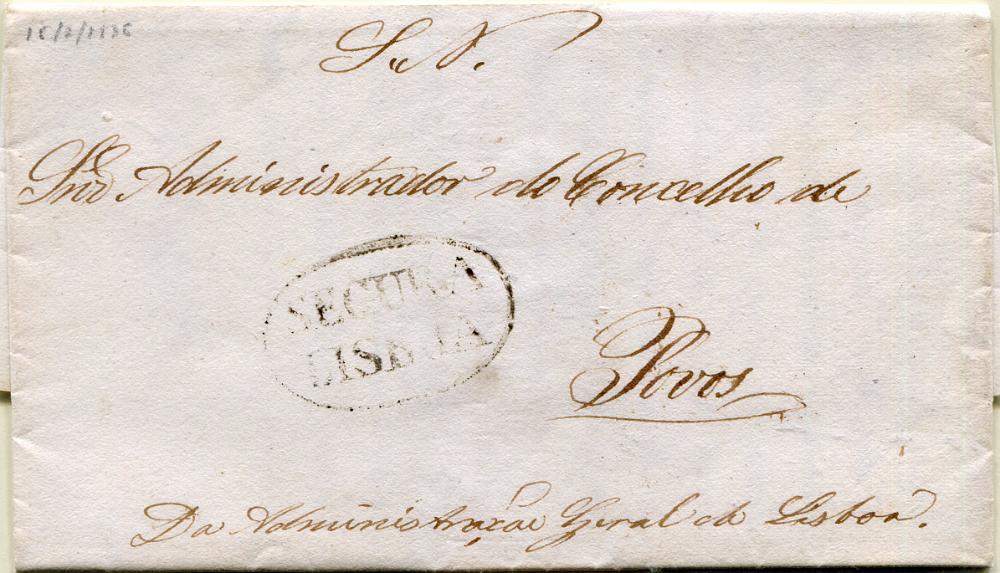 S. N.
Snr Administrador do Concelho de
SEGURA
LISBOA
Povos
Da Administração Geral de Lisboa.